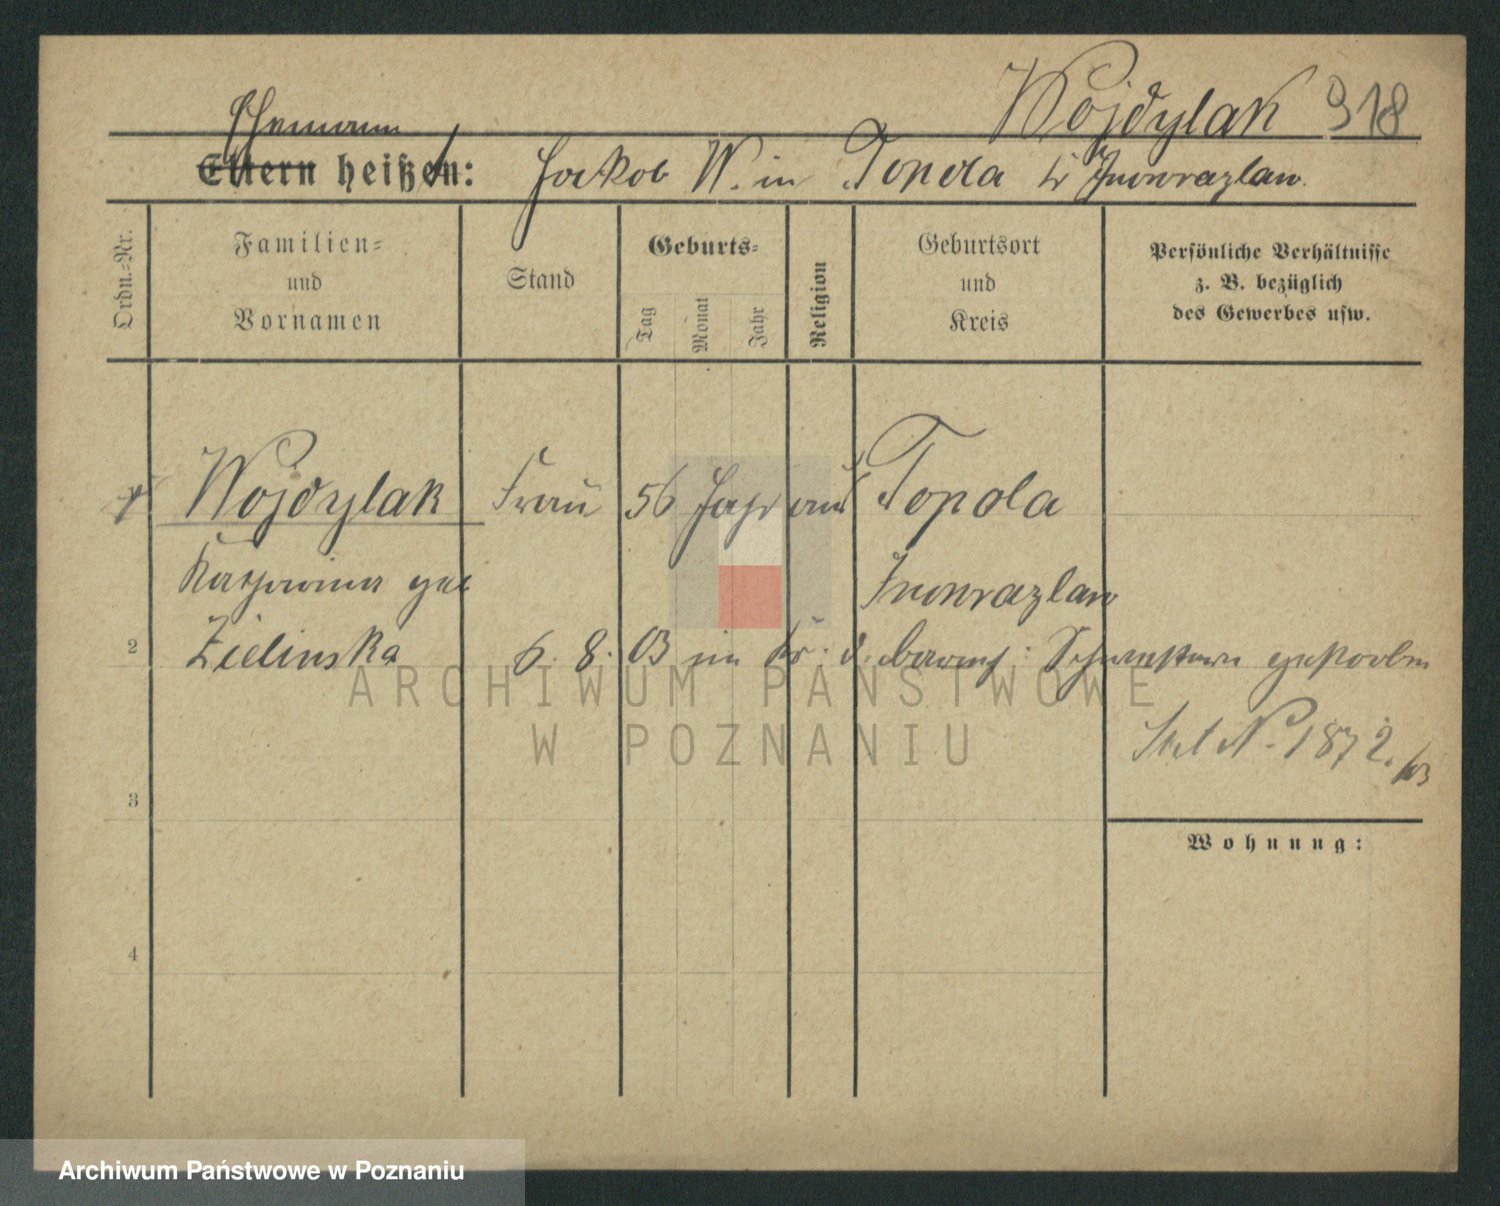 Wojdylak 318
Ehemann
Eltern heißen: Jakob W. in Topola Kr Inowrazlaw.
Ordn.-Nr.
Familien-
und
Vornamen
Stand
Geburts-
Tag
Monat
Jahr
Religion
Geburtsort
und
Kreis
Persönliche Verhältnisse
z. B. bezüglich
des Gewerbes usw.
Wojdylak Frau 56 Jahr aus Topola
Katharina geb Inowrazlaw
2 Zielinska 6. 8. 03 im Kr. d. barmh: Schwestern gestorben
N. 1872./03
3
Wohnung:
4
ARCHIWUM PAŃSTWOWE
W POZNANIU
Archiwum Państwowe w Poznaniu